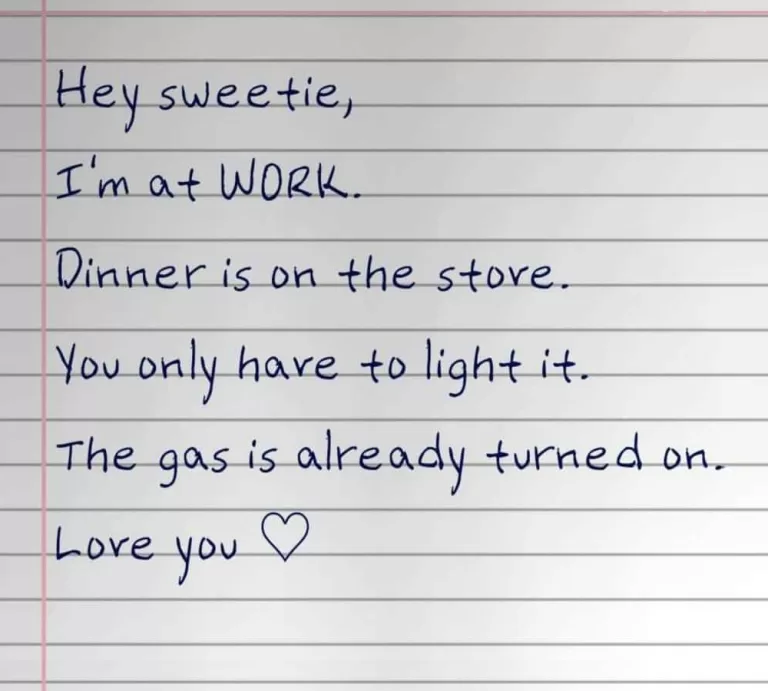 Hey sweetie,
I'm at WORK.
Dinner is on the store.
You only have to light it.
The gas is already turned on.
Love you ♡